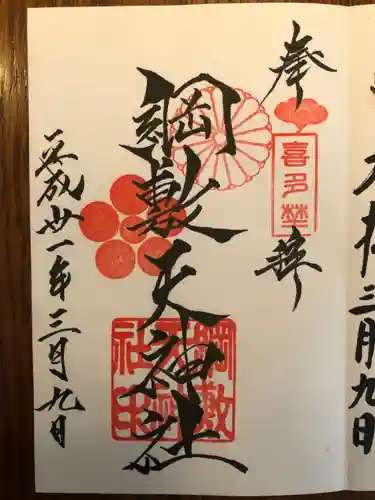 奉拝
喜多埜
綱敷天神社
綱敷
天神
社印
平成廿一年三月九日
三月九日